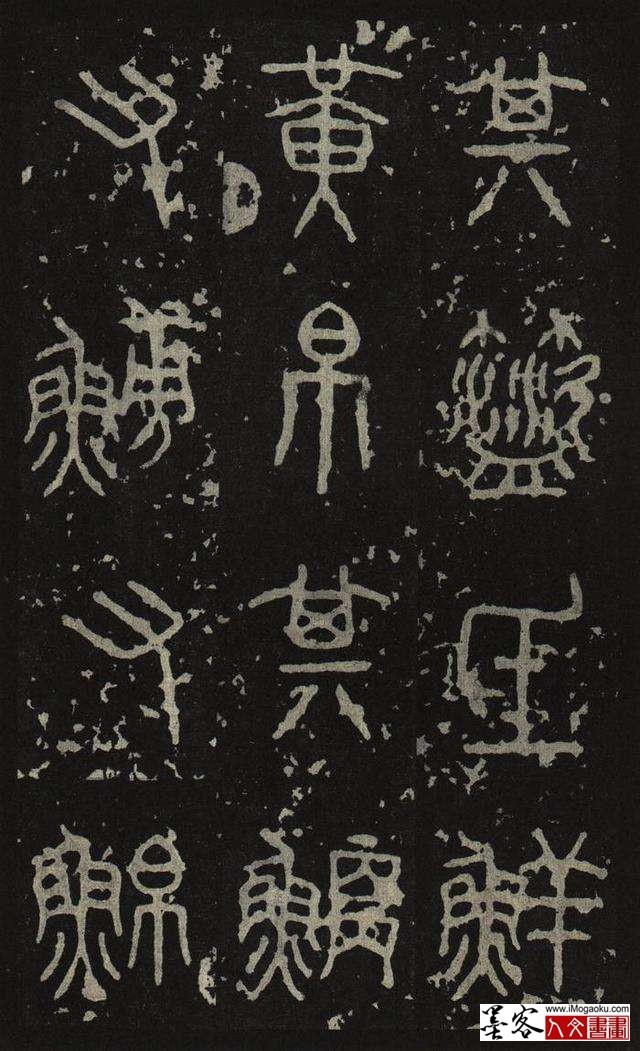 其盜氐鮮
黃帛其鯿
又鰟又鮊
墨客
www.iMogaoku.com
人文書畫